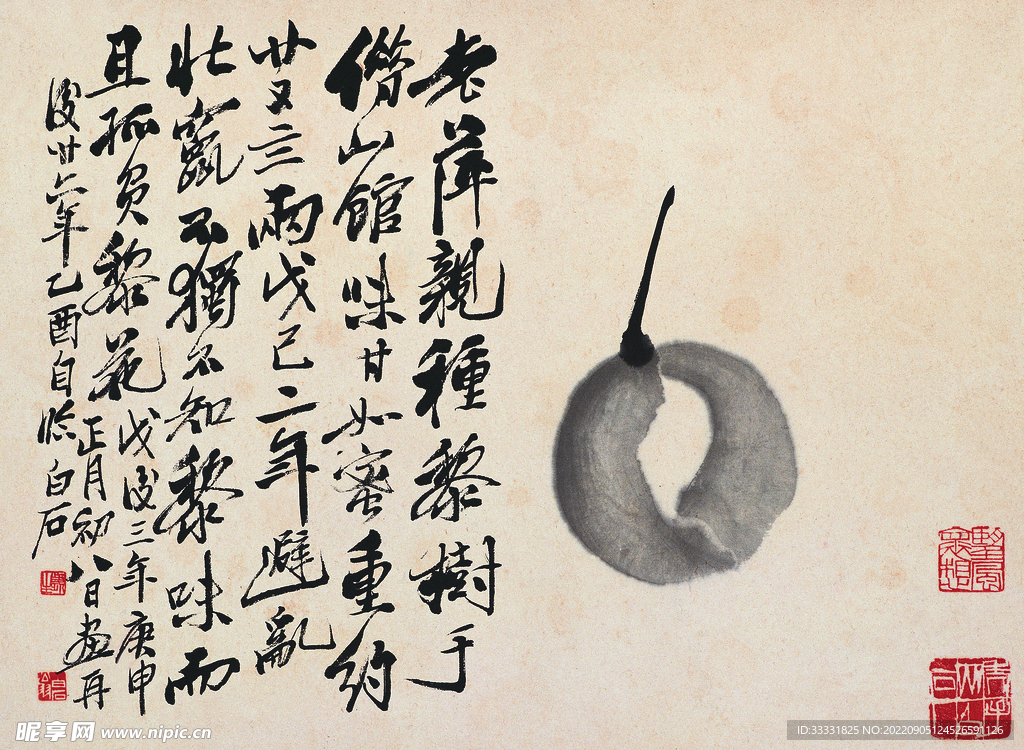 老萍親種黎樹于
借山館味甘如蜜重約
廿又三兩戊己二年避亂
北竄不獨不知黎味而
且孤負黎花戊後三年庚申
正月初八日畫再
後廿六年乙酉自臨白石
昵享网 www.nipic.cn
ID:33331825 NO:20220905124526591126